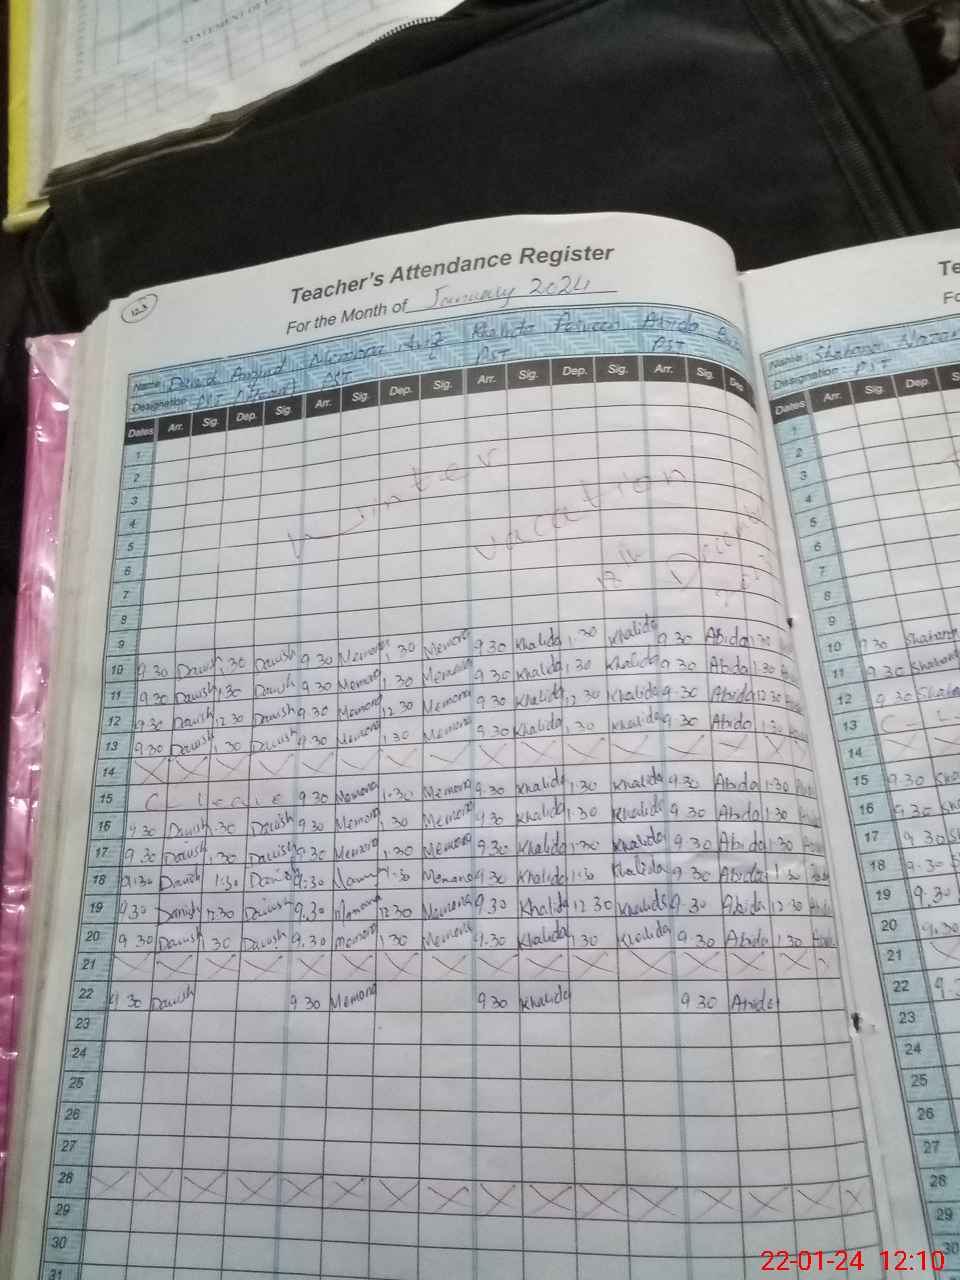 STATEMENT OF
123
Teacher's Attendance Register
For the Month of January 2024
Name Memona Aziz Khalida Parveen Abida
Designation: PST PST PST PST
Dates Arr. Sig. Dep. Sig. Arr. Sig. Dep. Sig. Arr. Sig. Dep. Sig. Arr. Sig. Dep.
1
2
3
4
5
6
7
8
9
winter vacation
10 9.30 Danish 1.30 Danish 9.30 Memona 1.30 Memona 9.30 Khalida 1.30 Khalida 9.30 Abida 1.30
11 9.30 Danish 1.30 Danish 9.30 Memona 1.30 Memona 9.30 Khalida 1.30 Khalida 9.30 Abida 1.30
12 9.30 Danish 12.30 Danish 9.30 Memona 12.30 Memona 9.30 Khalida 12.30 Khalida 9.30 Abida 12.30
13 9.30 Danish 1.30 Danish 9.30 Memona 1.30 Memona 9.30 Khalida 1.30 Khalida 9.30 Abida 1.30
14
15 C-Leave 9.30 Memona 1.30 Memona 9.30 Khalida 1.30 Khalida 9.30 Abida 1.30
16 9.30 Danish 1.30 Danish 9.30 Memona 1.30 Memona 9.30 Khalida 1.30 Khalida 9.30 Abida 1.30
17 9.30 Danish 1.30 Danish 9.30 Memona 1.30 Memona 9.30 Khalida 1.30 Khalida 9.30 Abida 1.30
18 9.30 Danish 1.30 Danish 9.30 1.30 Memona 9.30 Khalida 1.30 Khalida 9.30 Abida 1.30
19 9.30 Danish 12.30 Danish 9.30 Memona 12.30 Memona 9.30 Khalida 12.30 Khalida 9.30 Abida 12.30
20 9.30 Danish 1.30 Danish 9.30 Memona 1.30 Memona 9.30 Khalida 1.30 Khalida 9.30 Abida 1.30
21
22 9.30 Danish 9.30 Memona 9.30 Khalida 9.30 Abida
23
24
25
26
27
28
29
30
31
Te
Name Shahana
Designation: PST
Dates Arr. Sig. Dep.
1
2
3
4
5
6
7
8
9
10 9.30 Shahana
11 9.30 Shahana
12 9.30
13 C-L
14
15 9.30
16 9.30
17 9.30
18 9.30
19 9.30
20 9.30
21
22
23
24
25
26
27
28
29
30
22-01-24 12:10